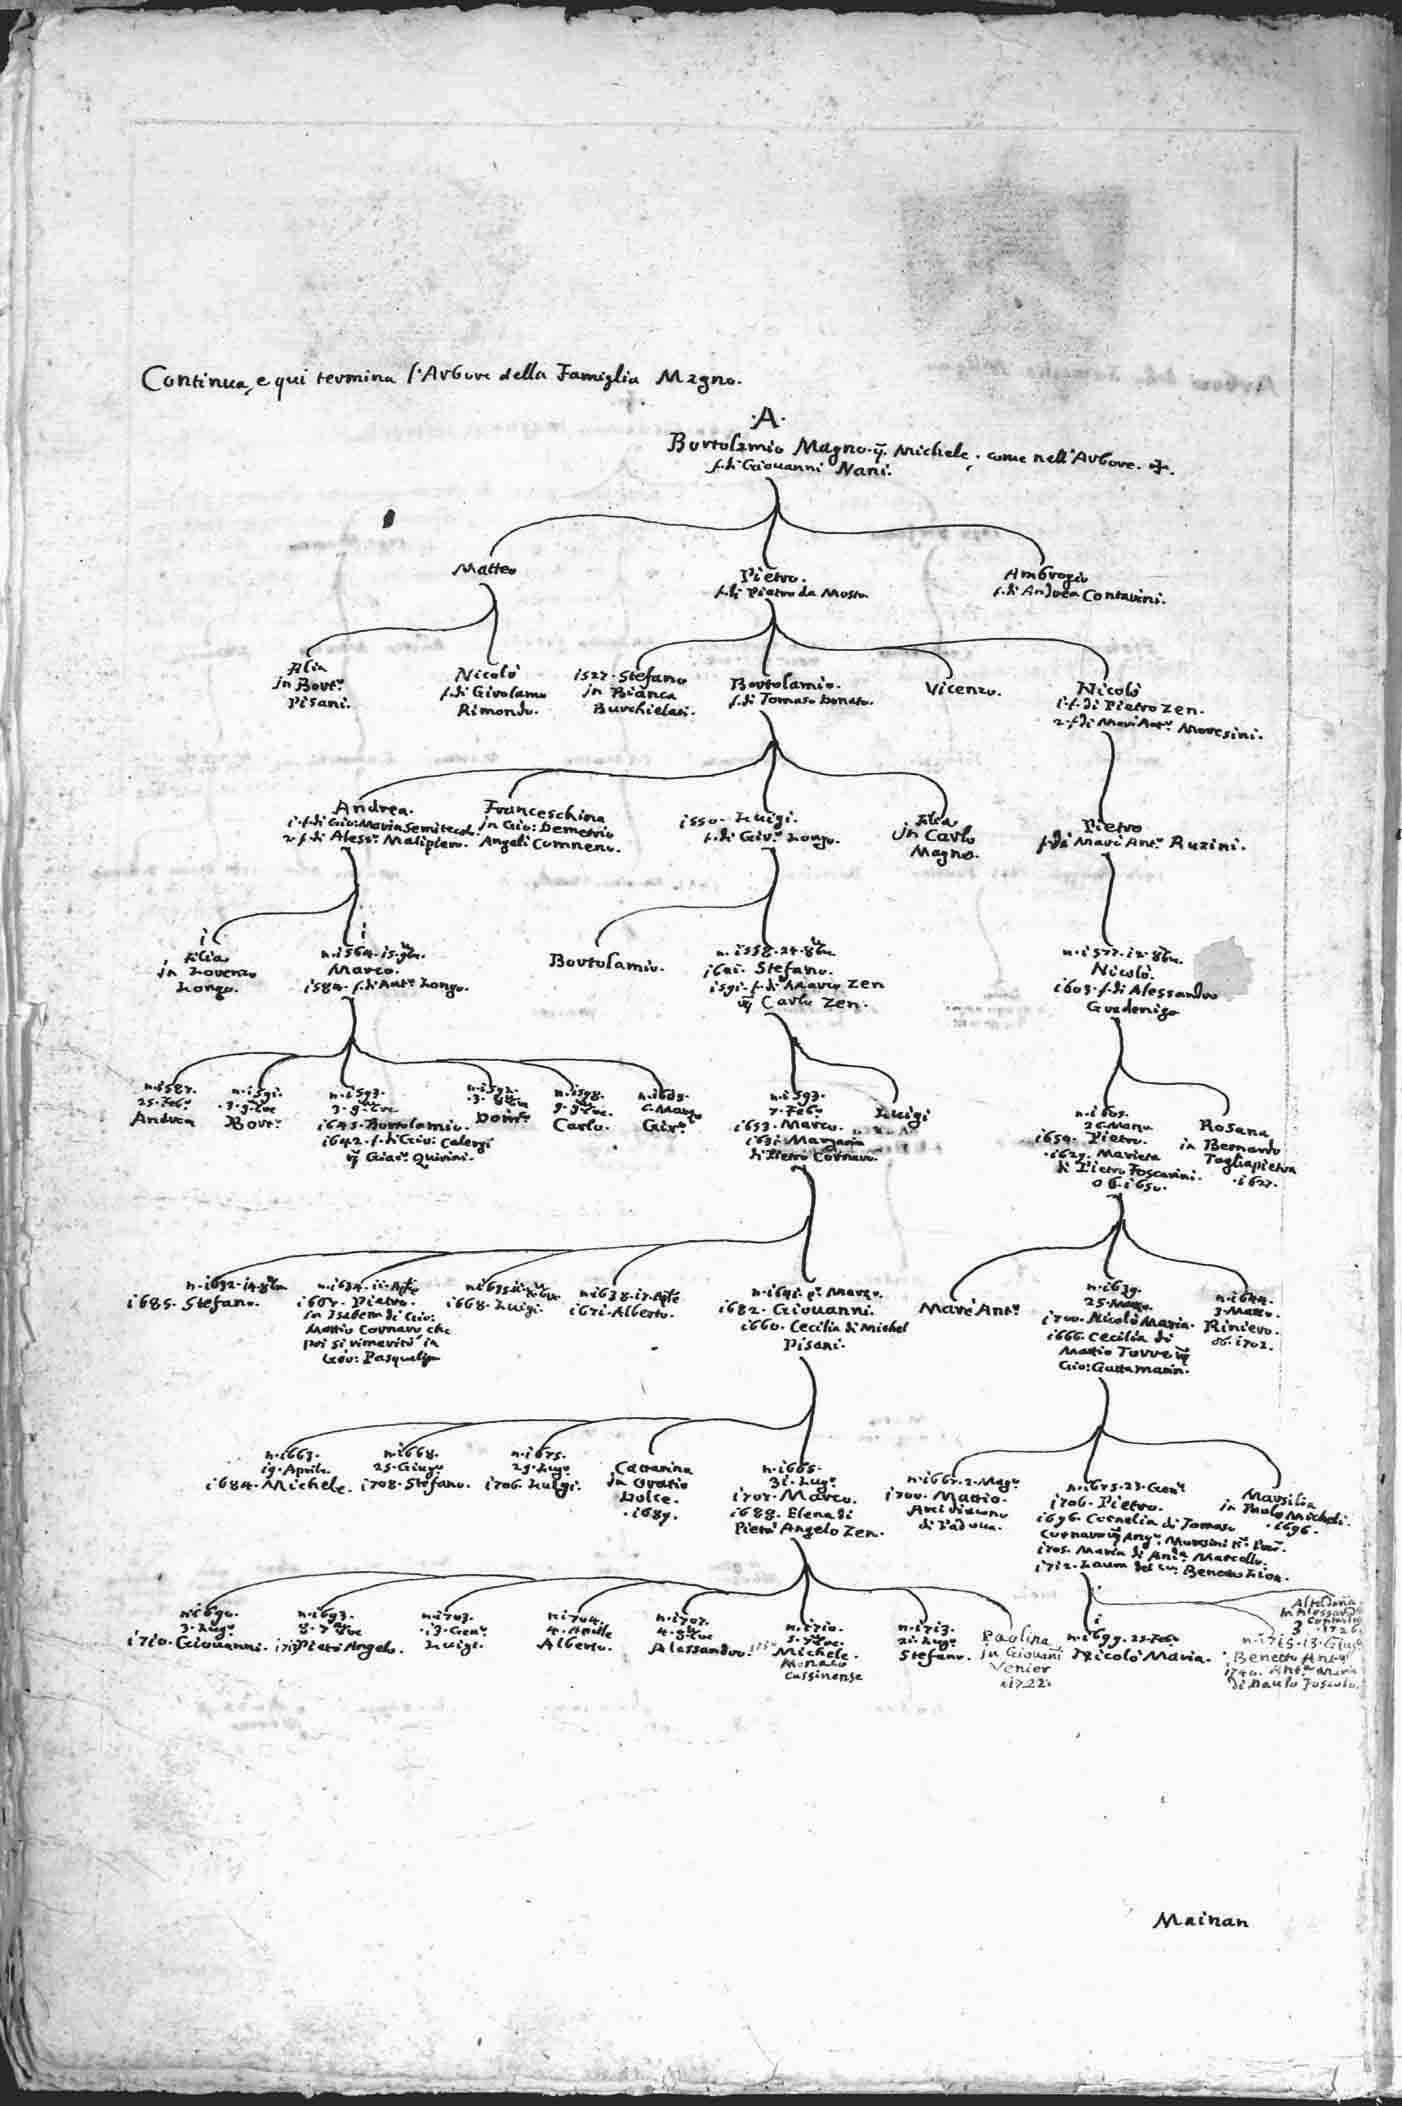 Continua, e qui termina l'Arbore della Famiglia Magno.
·A·
Bortolamio Magno q. Michele, come nell'Arbore.
f. di Giovanni Nani.
Matteo
Pietro.
f. di Pietro da Mosto
Ambrogio
f. di Andrea Contarini.
Filia
in Bort.º
Pisani.
Nicolò
f. di Girolamo
Rimondo.
1527. Stefano
in Bianca
Burchielati.
Bortolamio.
f. di Tomaso Donato.
Vicenzo.
Nicolò
1. f. di Pietro Zen.
2. f. di Marc'Ant.º Moresini.
Andrea.
1. f. di Gio: Maria Semitecolo
2. f. di Aless.º Malipiero.
Franceschina
in Gio: Demetrio
Angeli Comneno.
1550. Luigi.
f. di Gir.º Longo.
Filia
in Carlo
Magno.
Pietro
f. di Marc'Ant.º Ruzini.
1
Filia
in Lorenzo
Longo.
1
n. 1564. 15. 9bre.
Marco.
1584. f. di Ant.º Longo.
Bortolamio.
n. 1558. 24. 8bre.
1621. Stefano.
1591. f. di Marco Zen
q Carlo Zen.
n. 1577. 12. 8bre.
Nicolò.
1603. f. di Alessandro
Gradenigo
n. 1587.
25. Feb.º
Andrea
n. 1591.
3. 9bre
Bort.º
n. 1593.
3. 9bre.
1645. Bortolamio.
1642. f. di Gio: Calergi
q Giac.º Querini.
Dom.º
n. 1598.
9. 9bre.
Carlo.
n. 1605.
6. Marzo
Gir.º
n. 1593.
7. Feb.º
1653. Marco.
1631. Margarita
di Pietro Cornaro.
Luigi
n. 1605.
26. Marzo
1654. Pietro.
1627. Marieta
di Pietro Foscarini.
ob. 1650.
Rosana
in Bernardo
Tagliapietra
1627.
n. 1632. 14. 8bre
1685. Stefano.
n. 1634. 11. Aple
1667. Pietro.
in Isabetta di Gio:
Mattio Cornaro che
poi si rimaritò in
Gio: Pasqualigo
1668. Luigi.
n. 1638. 17. Aple
1671. Alberto.
n. 1641. p.º Marzo.
1682. Giovanni.
1660. Cecilia di Michel
Pisani.
Marc'Ant.º
n. 1639.
25. Marzo.
1700. Nicolò Maria.
1666. Cecilia di
Mattio Torre q
Gio: Gattamarin.
n. 1644.
3. Marzo.
Riniero.
ob. 1702.
n. 1663.
19. Aprile.
1684. Michele.
n. 1668.
25. Giug.º
1708. Stefano.
n. 1675.
29. Lug.º
1706. Luigi.
Cattarina
in Oratio
Dolce.
1689.
n. 1665.
31. Lug.º
1707. Marco.
1688. Elena di
Pietro Angelo Zen.
n. 1667. 2. Mag.º
1700. Mattio.
Arcidiacono
di Padova.
n. 1675. 23. Gen.º
1706. Pietro.
1696. Cornelia di Tomaso
Cornaro q Ang.º Moresini
1705. Maria di And.ª Marcello.
1712. Laura del Benetto Lion.
Marsilia
in Paolo Micheli.
1696.
n. 1690.
3. Lug.º
1710. Giovanni.
n. 1693.
8. 7bre
Pietro Angelo.
n. 1703.
19. Gen.º
Luigi.
n. 1704.
4. Aprile
Alberto.
n. 1707.
4. 8bre
Alessandro.
n. 1710.
5. 7bre.
Michele.
Monaco
Cassinense
n. 1713.
21. Lug.º
Stefano.
Paolina
in Giovanni
Venier
1722.
1
n. 1699. 25. Feb.º
Nicolò Maria.
in Alessandro
Contarini
3 1726.
n. 1715. 13. Giug.º
Benetto Ant.º
1740. Ant.ª Maria
di Paulo Foscolo.
Mainan